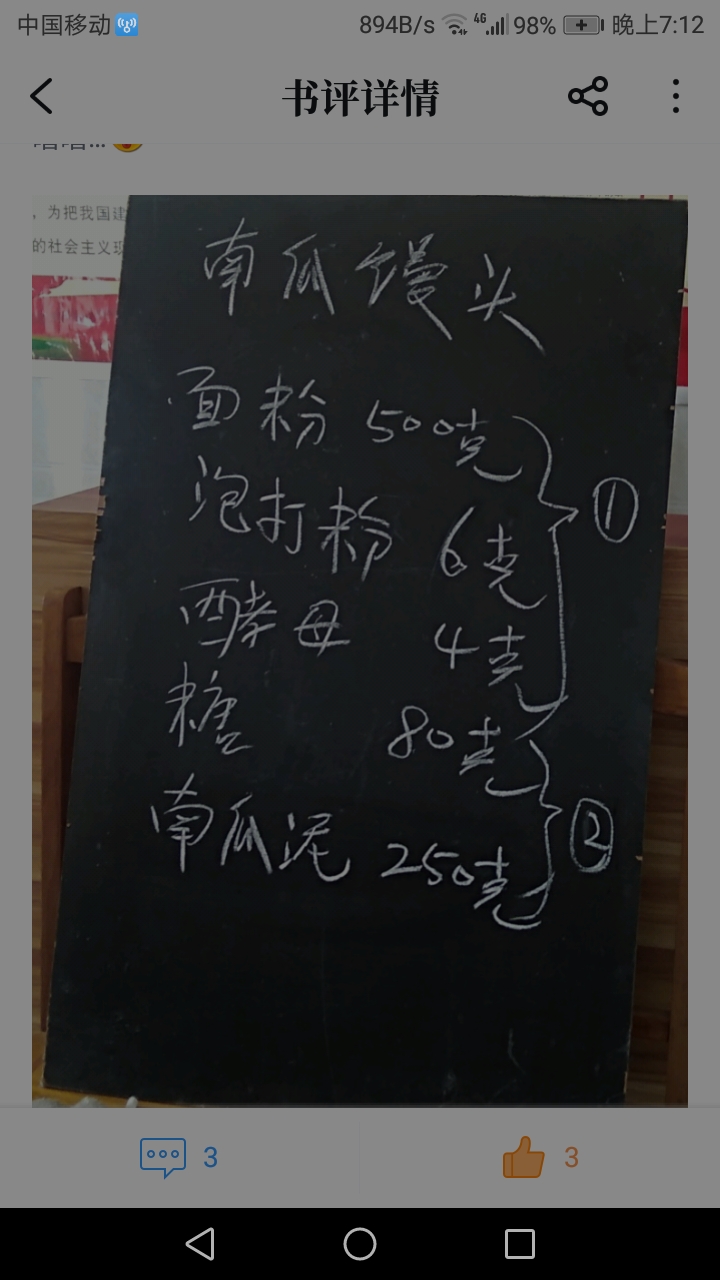 中国移动 894B/s 4G 98% 晚上7:12
书评详情
，为把我国建
的社会主义现
南瓜馒头
面粉 500克
泡打粉 6克
①
酵母 4克
糖 80克
南瓜泥 250克
②
3 3